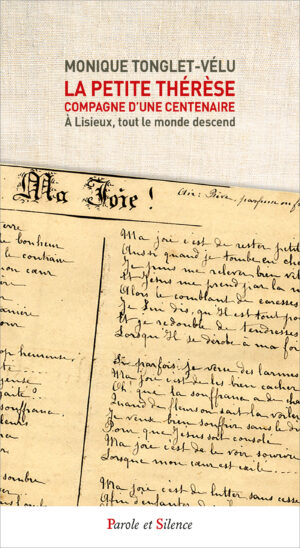 MONIQUE TONGLET-VÉLU
LA PETITE THÉRÈSE
COMPAGNE D'UNE CENTENAIRE
À Lisieux, tout le monde descend
Ma Joie !
Air: Rive, parfum ou
bonheur
le contraire
mon cœur
Ma joie c'est de rester petite
Aussi quand je tombe en chemin
Je puis me relever bien vite
Et Jésus me prend par la main
Alors le comblant de caresses
Je Lui dis, qu'Il est tout pour
Et je redouble de tendresses
Lorsqu'Il se dérobe à ma foi
heureuse;
souffrance.
Si parfois je verse des larmes
Ma joie c'est de les bien cacher
Oh! que la souffrance a de
Quand de fleurs on sait la voiler
Je veux bien souffrir sans le dire
Pour que Jésus soit consolé
Ma joie c'est de le voir sourire
Lorsque mon cœur est
sombre
Ma joie c'est de lutter sans cesse
Parole et Silence